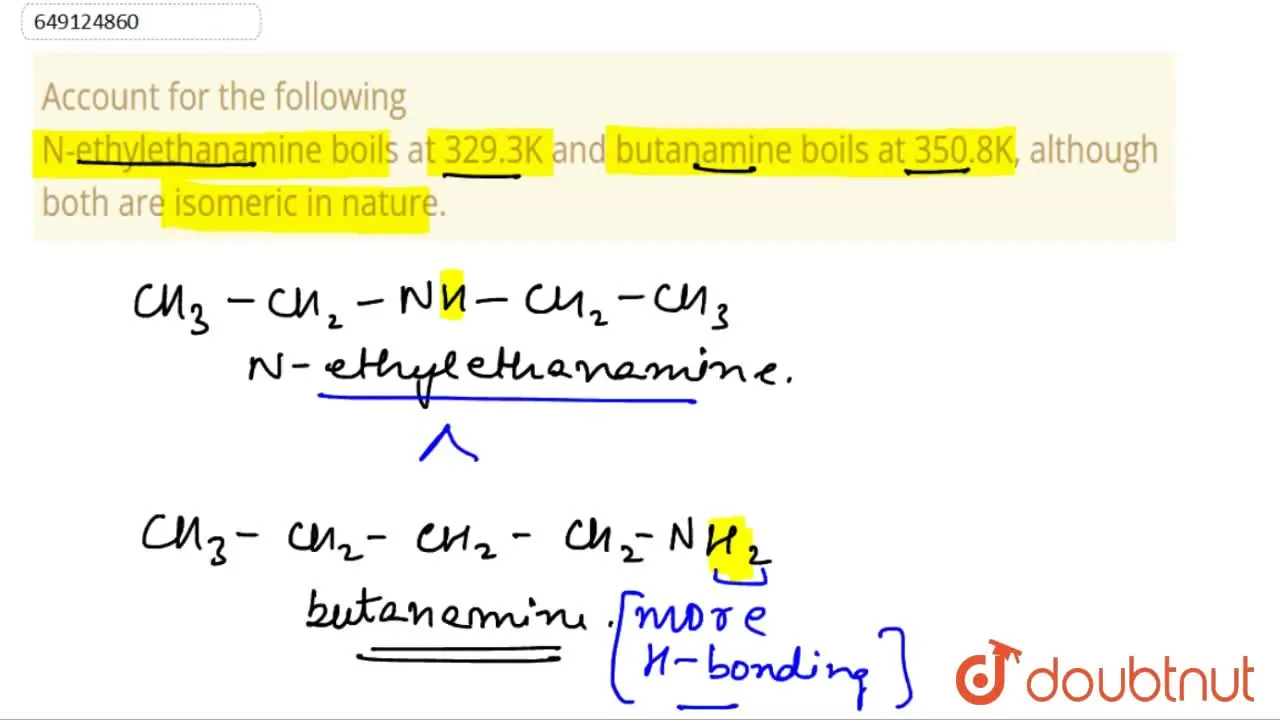 649124860
Account for the following
N-ethylethanamine boils at 329.3K and butanamine boils at 350.8K, although
both are isomeric in nature.
CH3 - CH2 - NH - CH2 - CH3
N- ethylethanamine.
CH3 - CH2 - CH2 - CH2 - NH2
butanamine. [more
H-bonding]
doubtnut